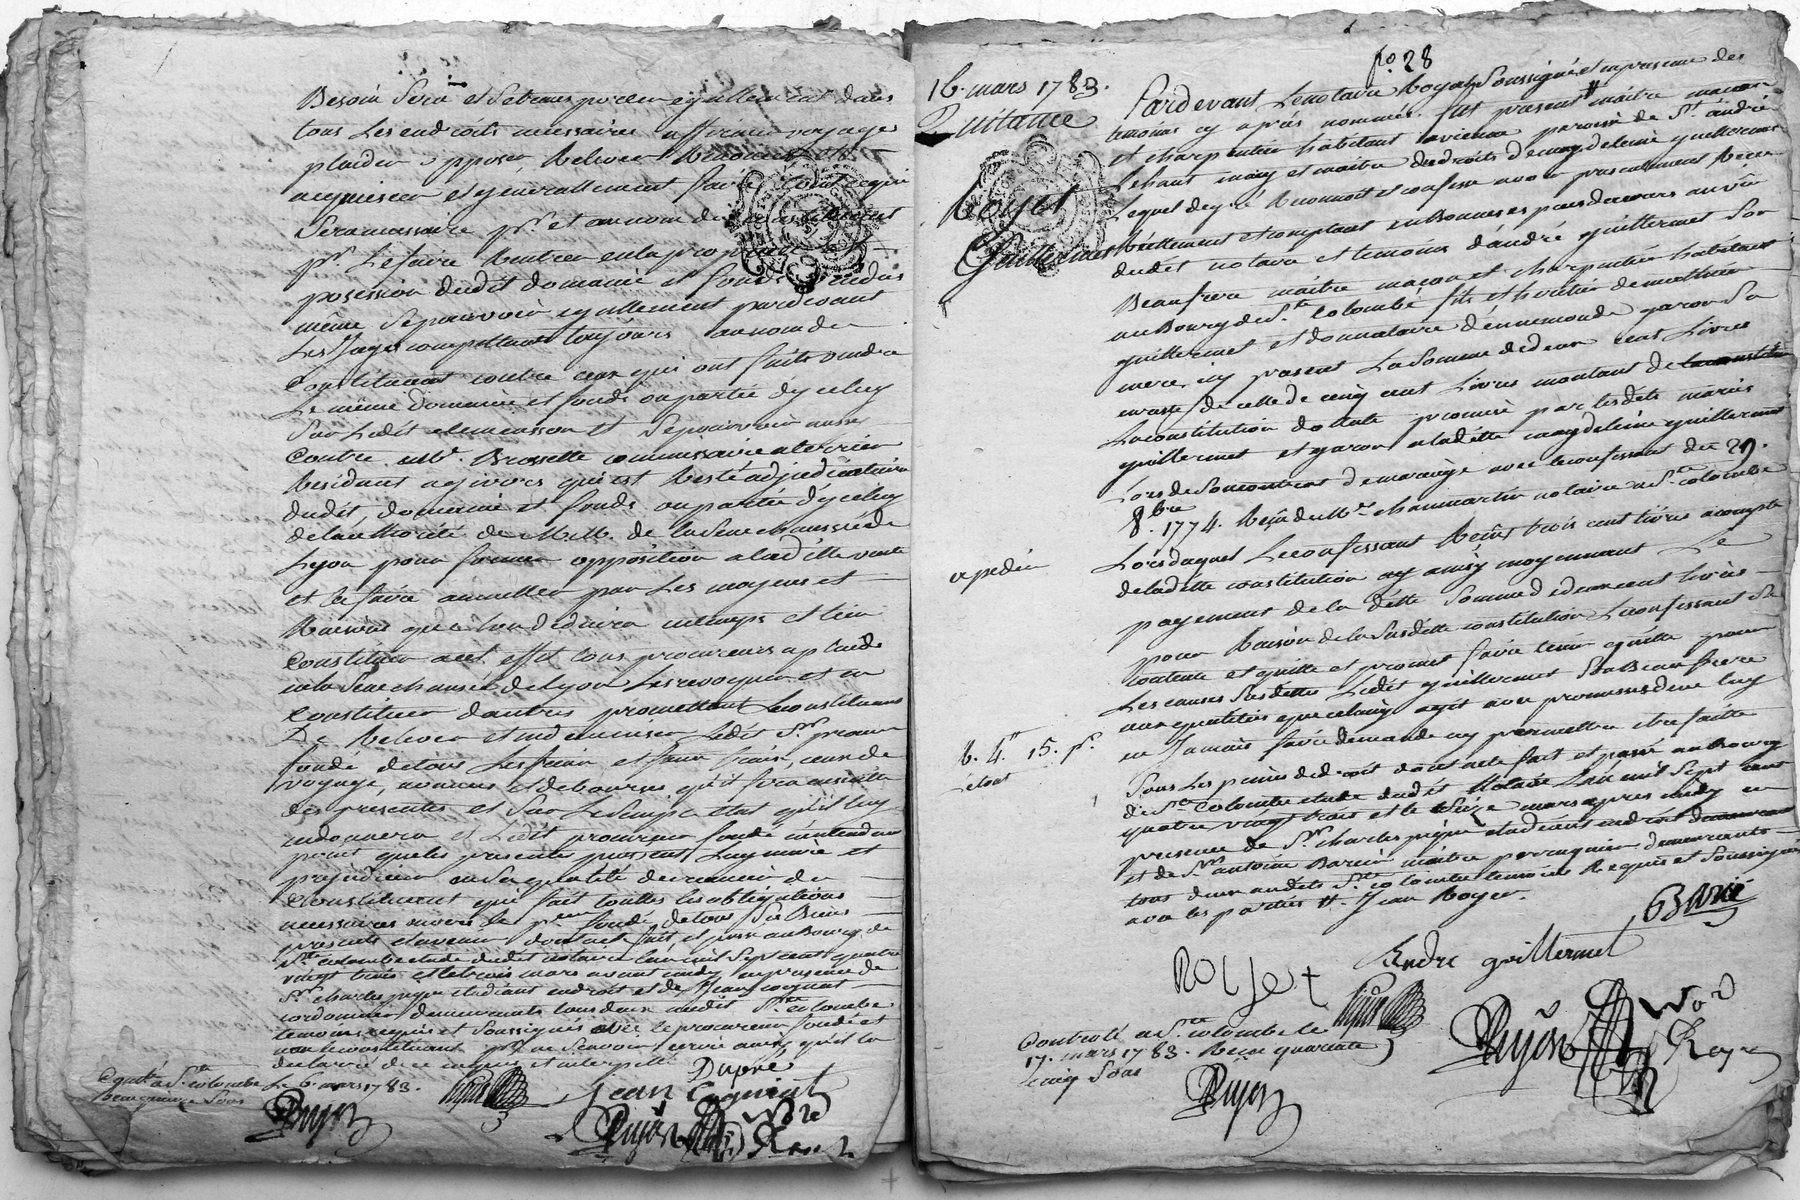 Besoin Sera et Setransporter egallement dans
tous Les endroits necessaires affirmer voyages
plaider opposer Relever Renoncer
acquiescer et generallement faire tout cequi
Sera necessaire pr. et au nom du Constituant
pr. Le faire Rentrer en la proprieté et
possession dudit domaine et fonds vendus
même Sepourvoir egallement pardevant
Les Juges compettant toujours au nom du
Constituant contre ceux qui ont faits vendre
Le même domaine et fonds ou partie dycelluy
Sur Ledit et Sepourvoir aussi
Contre Mr. Brossette commissaire aterrier
Residant qui est Resté adjudicataire
dudit domaine et fonds ou partie dycelluy
de lauthorité de MM. de la Senechaussée de
Lyon pour former opposition aladitte vente
et la faire annuller par Les moyens et
Raisons qu'en lon dedüira entemps et lieu
Constituer acet effet tous procureurs aplaids
enla Senechaussée de Lyon Les revoquer et en
Constituer dautres promettant Leconstituant
De Relever et indemniser Ledit Sr. procureur
fondé detous Les frais et faux frais, ceux de
voyage, avances et debourses qu'il fera ensuitte
des presentes et Sur Lesimple Etat qu'il luy
endonnera et Ledit procureur fondé n'entendant
point que les presentes puissent Luy nuire et
prejudicier en Sa qualité de creancier du
Constituant qui fait touttes les obligations
necessaires envers le pr. fondé detous Ses Biens
presents etavenir dont acte fait et passé aubourg de
Ste. colombe etude dudit notaire L'an mil Sept cents quatre
vingt trois et letrois mars avant midy en presence de
Sr. charles pique etudiant endroit et de Jean coignat
cordonnier demeurants tous deux audit Ste. colombe
temoins requis et Soussignés avec leprocureur fondé et
non leconstituant pr. ne Scavoir ecrire ainsy qu'il la
declaré de ce enquis et interpellé
Contlé a Ste. colombe Le 6 mars 1783.
Reçu quinze Sous
Dupré
Jean Coignat
Pujon
fo. 28
16. mars 1783.
Quitance
Royet
Guillermet
expediée
b. 4tt 15. s.
Pardevant Lenotaire Royal Soussigné et en presence des
temoins cy après nommés. fut present maitre macon
et charpentier habitant avienne paroisse de St. andré
Lehaut mary et maitre desdroits de magdeleine guillermet
Lequel de gré Reconnoit et confesse avoir presentement Recu
Réellement et comptant en Bonnes especes decours auvû
dudit notaire et temoins d'andré guillermet Son
Beaufrere maître maçon et charpentier habitant
au Bourg de Ste. colombe fils et heritier de
guillermet et donnataire d'ennemonde garon Sa
mere, icy present La Somme de deux cent Livres
enreste de celle de cinq cent Livres montant de
Laconstitution dottale promise par lesdits mariés
guillermet et garon aladitte magdeleine guillermet
Lors de Son contrat de mariage avec leconfessant du 29.
8bre. 1774. Reçu de Me. chanmartin notaire a Ste. colombe
Lors duquel Leconfessant Reçut trois cent livres acompte
deladitte constitution ay ainsy moyennant Le
payement de la ditte Somme de deux cent livres
pour Raison de la Susditte constitution Leconfessant Se
contente et quitte et promet faire tenir quitte pour
Les causes Susdittes Ledit guillermet Son Beaufrere
aux qualités que celuicy agit avec promesses de ne luy
en Jamais faire demande ny permettre etre faitte
Sous Les peines dedroit dont acte fait et passé aubourg
de Ste. Colombe etude dudit Notaire L'an mil Sept cent
quatre vingt trois et le Seize mars apres midy en
presence de Sr. charles pique etudiant endroit
et de Sr. antoine Barié maitre perruquier demeurants
tous deux audit Ste. colombe temoins Requis et Soussignés
avec les parties #. Jean Royer.
Barié
Royet
Andre guillermet
Controlé a Ste. colombe le
17. mars 1783. Reçu quarante
cinq Sous
Pujon
Pujon